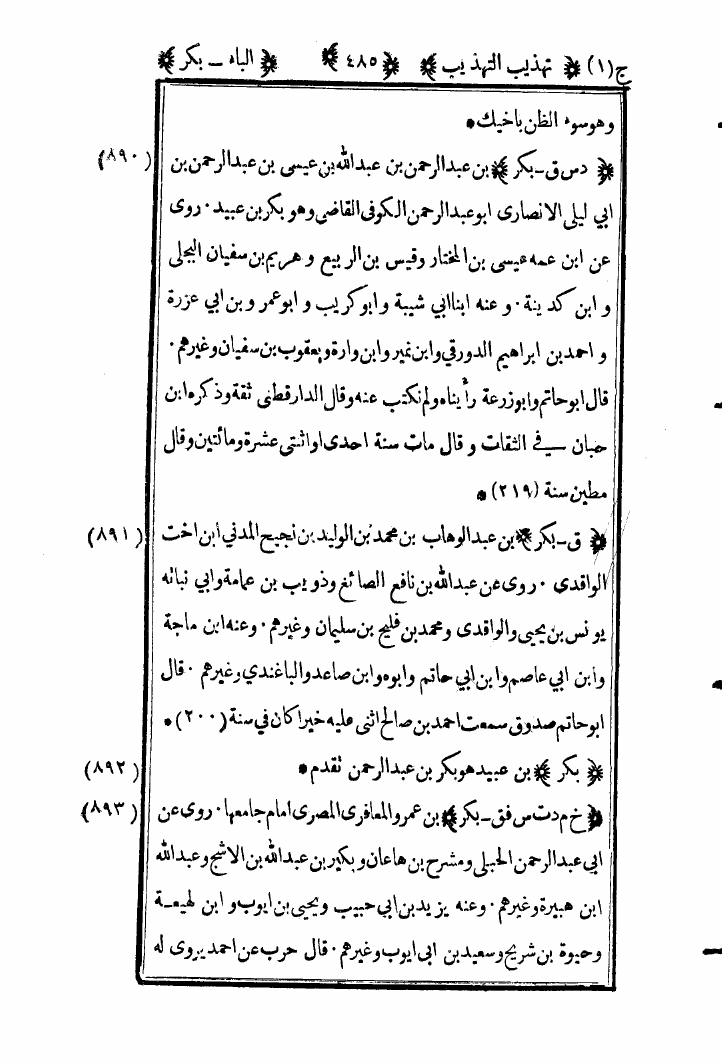 ج(١) ﴿ تهذيب التهذيب ﴾ ﴿ ٤٨٥ ﴾ ﴿ الباء ـ بكر ﴾
وهوسوء الظن باخيك *
﴿ دس ق ـ بكر ﴾ بن عبدالرحمن بن عبدالله بن عيسى بن عبدالرحمن بن (٨٩٠)
ابي ليلى الانصارى ابوعبدالرحمن الكوفى القاضى وهو بكربن عبيد ٠ روى
عن ابن عمه عيسى بن المختار وقيس بن الربيع و هريم بن سفيان البجلى
و ابن كدينة ٠ و عنه ابنا ابي شيبة و ابوكريب و ابوعمر و بن ابي عزرة
و احمد بن ابراهيم الدورقي وابن نمير وابن وارة و يعقوب بن سفيان وغيرهم ٠
قال ابوحاتم وابوزرعة رأيناه ولم نكتب عنه وقال الدارقطنى ثقة وذكره ابن
حبان في الثقات و قال مات سنة احدى او اثنتى عشرة ومائتين وقال
مطين سنة (٢١٩) *
﴿ ق ـ بكر ﴾ بن عبدالوهاب بن محمد بن الوليد بن نجيح المدني ابن اخت (٨٩١)
الواقدى ٠ روى عن عبدالله بن نافع الصائغ وذويب بن عمامة وابي نباته
يونس بن يحيى والواقدى ومحمد بن فليح بن سليمان وغيرهم ٠ وعنه ابن ماجة
وابن ابي عاصم وابن ابي حاتم وابوه وابن صاعد والباغندي وغيرهم ٠ قال
ابوحاتم صدوق سمعت احمد بن صالح اثنى عليه خيرا كان في سنة (٢٠٠) *
﴿ بكر ﴾ بن عبيد هو بكر بن عبدالرحمن تقدم * (٨٩٢)
﴿ خ م دت س فق ـ بكر ﴾ بن عمرو المعافرى المصرى امام جامعها ٠ روى عن (٨٩٣)
ابي عبدالرحمن الحبلى ومشرح بن هاعان و بكير بن عبدالله بن الاشج وعبدالله
ابن هبيرة وغيرهم ٠ وعنه يزيد بن ابي حبيب ويحيى بن ايوب و ابن لهيعة
وحيوة بن شريح و سعيد بن ابى ايوب وغيرهم ٠ قال حرب عن احمد يروى له